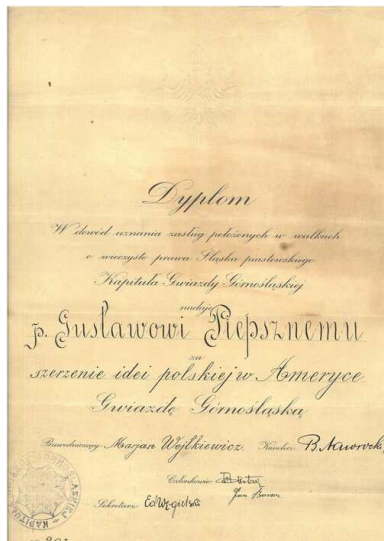 Dyplom
W dowód uznania zasług położonych w walkach
o wieczyste prawa Śląska piastowskiego
Kapituła Gwiazdy Górnośląskiej
nadaje
p. Gustawowi Piepsznemu
za
szerzenie idei polskiej w Ameryce
Gwiazdę Górnośląską
Przewodniczący Marjan Wojtkiewicz Kanclerz
Członkowie
Sekretarz